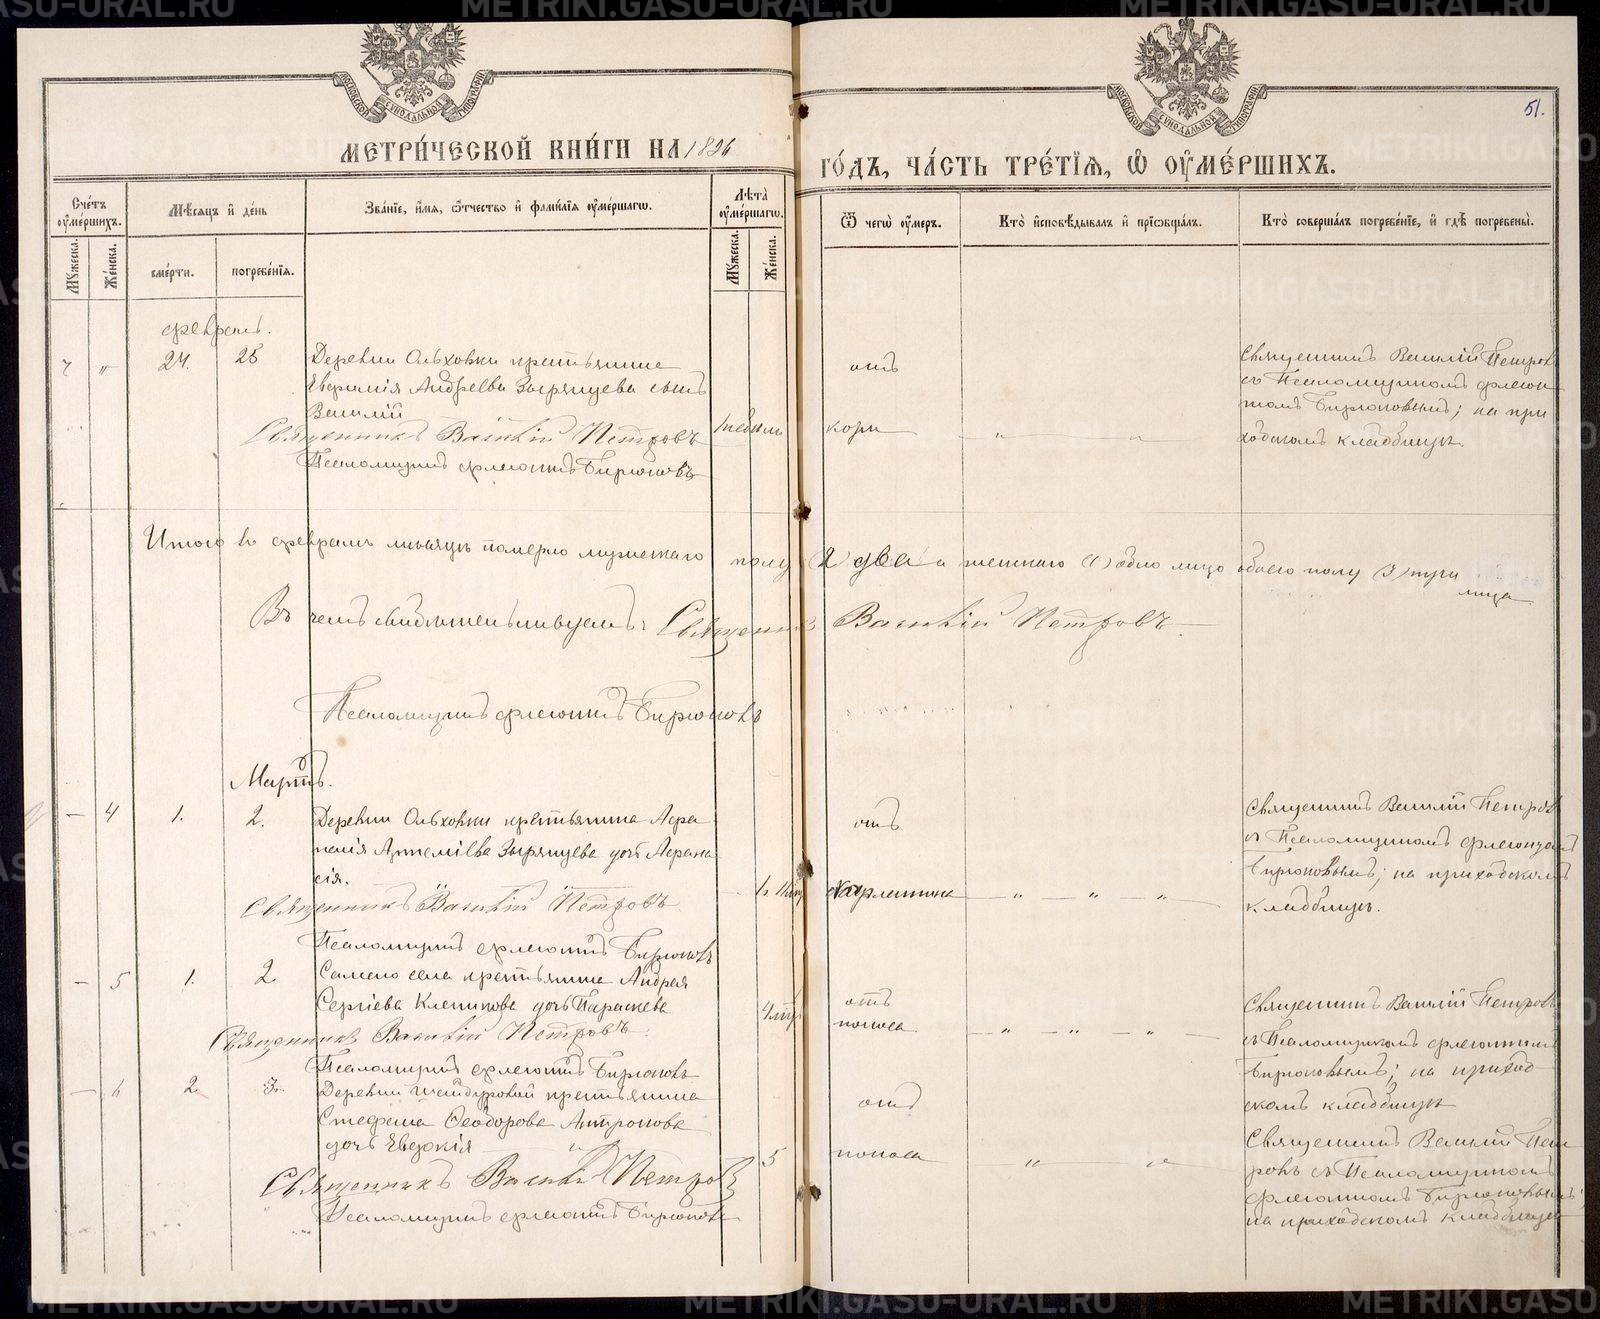 МОСКОВСКОЙ СѴНОДАЛЬНОЙ ТИПОГРАФІИ
МОСКОВСКОЙ СѴНОДАЛЬНОЙ ТИПОГРАФІИ
51.
МЕТРИ́ЧЕСКОЙ КНИ́ГИ НА 1896
ГО́ДЪ, ЧА́СТЬ ТРЕ́ТІѦ, Ѡ҆ ОУ҆МЕ́РШИХЪ.
Сче́тъ оу҆ме́ршихъ.
Мѣ́сяцъ и҆ де́нь
Зва́нїе, и҆́мя, ѻ҆́тчество и҆ фами́лїя оу҆ме́ршагѡ.
Лѣта̀ оу҆ме́ршагѡ.
Ѿ чегѡ̀ оу҆́меръ.
Кто̀ и҆сповѣ́дывалъ и҆ прїѡбща́лъ.
Кто̀ соверша́лъ погребе́нїе, и҆ гдѣ̀ погребены̀.
Му́жеска.
Же́нска.
сме́рти.
погребе́нїя.
Му́жеска.
Же́нска.
февраль.
24. 25 Деревни Ольховки крестьянина
Евфимія Андреева Зырянцева сынъ
Василій
Священникъ Василій Петровъ
Псаломщикъ Флегонтъ Бирюковъ
1 недели
отъ
кори
Священникъ Василій Петровъ
съ Псаломщикомъ Флегон
томъ Бирюковымъ; на при
ходскомъ кладбищѣ.
Итого въ февралѣ мѣсяцѣ померло мужескаго полу (2) два а женскаго (1) одно лицо обоего полу (3) три
лица
Въ чемъ свидѣтельствуемъ: Священникъ Василій Петровъ
Псаломщикъ Флегонтъ Бирюковъ
Мартъ.
— 4 1. 2. Деревни Ольховки крестьянина Афа
насія Артемiева Зырянцева дочь Афана
сія.
Священникъ Василій Петровъ
Псаломщикъ Флегонтъ Бирюковъ
отъ
Священникъ Василій Петровъ
съ Псаломщикомъ Флегонтомъ
Бирюковымъ; на приходскомъ
кладбищѣ.
— 5 1. 2. Самаго села крестьянина Андрея
Сергіева Клепикова дочь Параскева
Священникъ Василій Петровъ
Псаломщикъ Флегонтъ Бирюковъ
отъ
поноса
Священникъ Василій Петровъ
съ Псаломщикомъ Флегонтомъ
Бирюковымъ; на приход
скомъ кладбищѣ
— 6 2. 3. Деревни крестьянина
Стефана Ѳеодорова Антропова
дочь Евдокія
5
Священникъ Василій Петровъ
Псаломщикъ Флегонтъ Бирюковъ
отъ
поноса
Священникъ Василій Пет
ровъ съ Псаломщикомъ
Флегонтомъ Бирюковымъ;
на приходскомъ кладбищѣ
METRIKI.GASO-URAL.RU